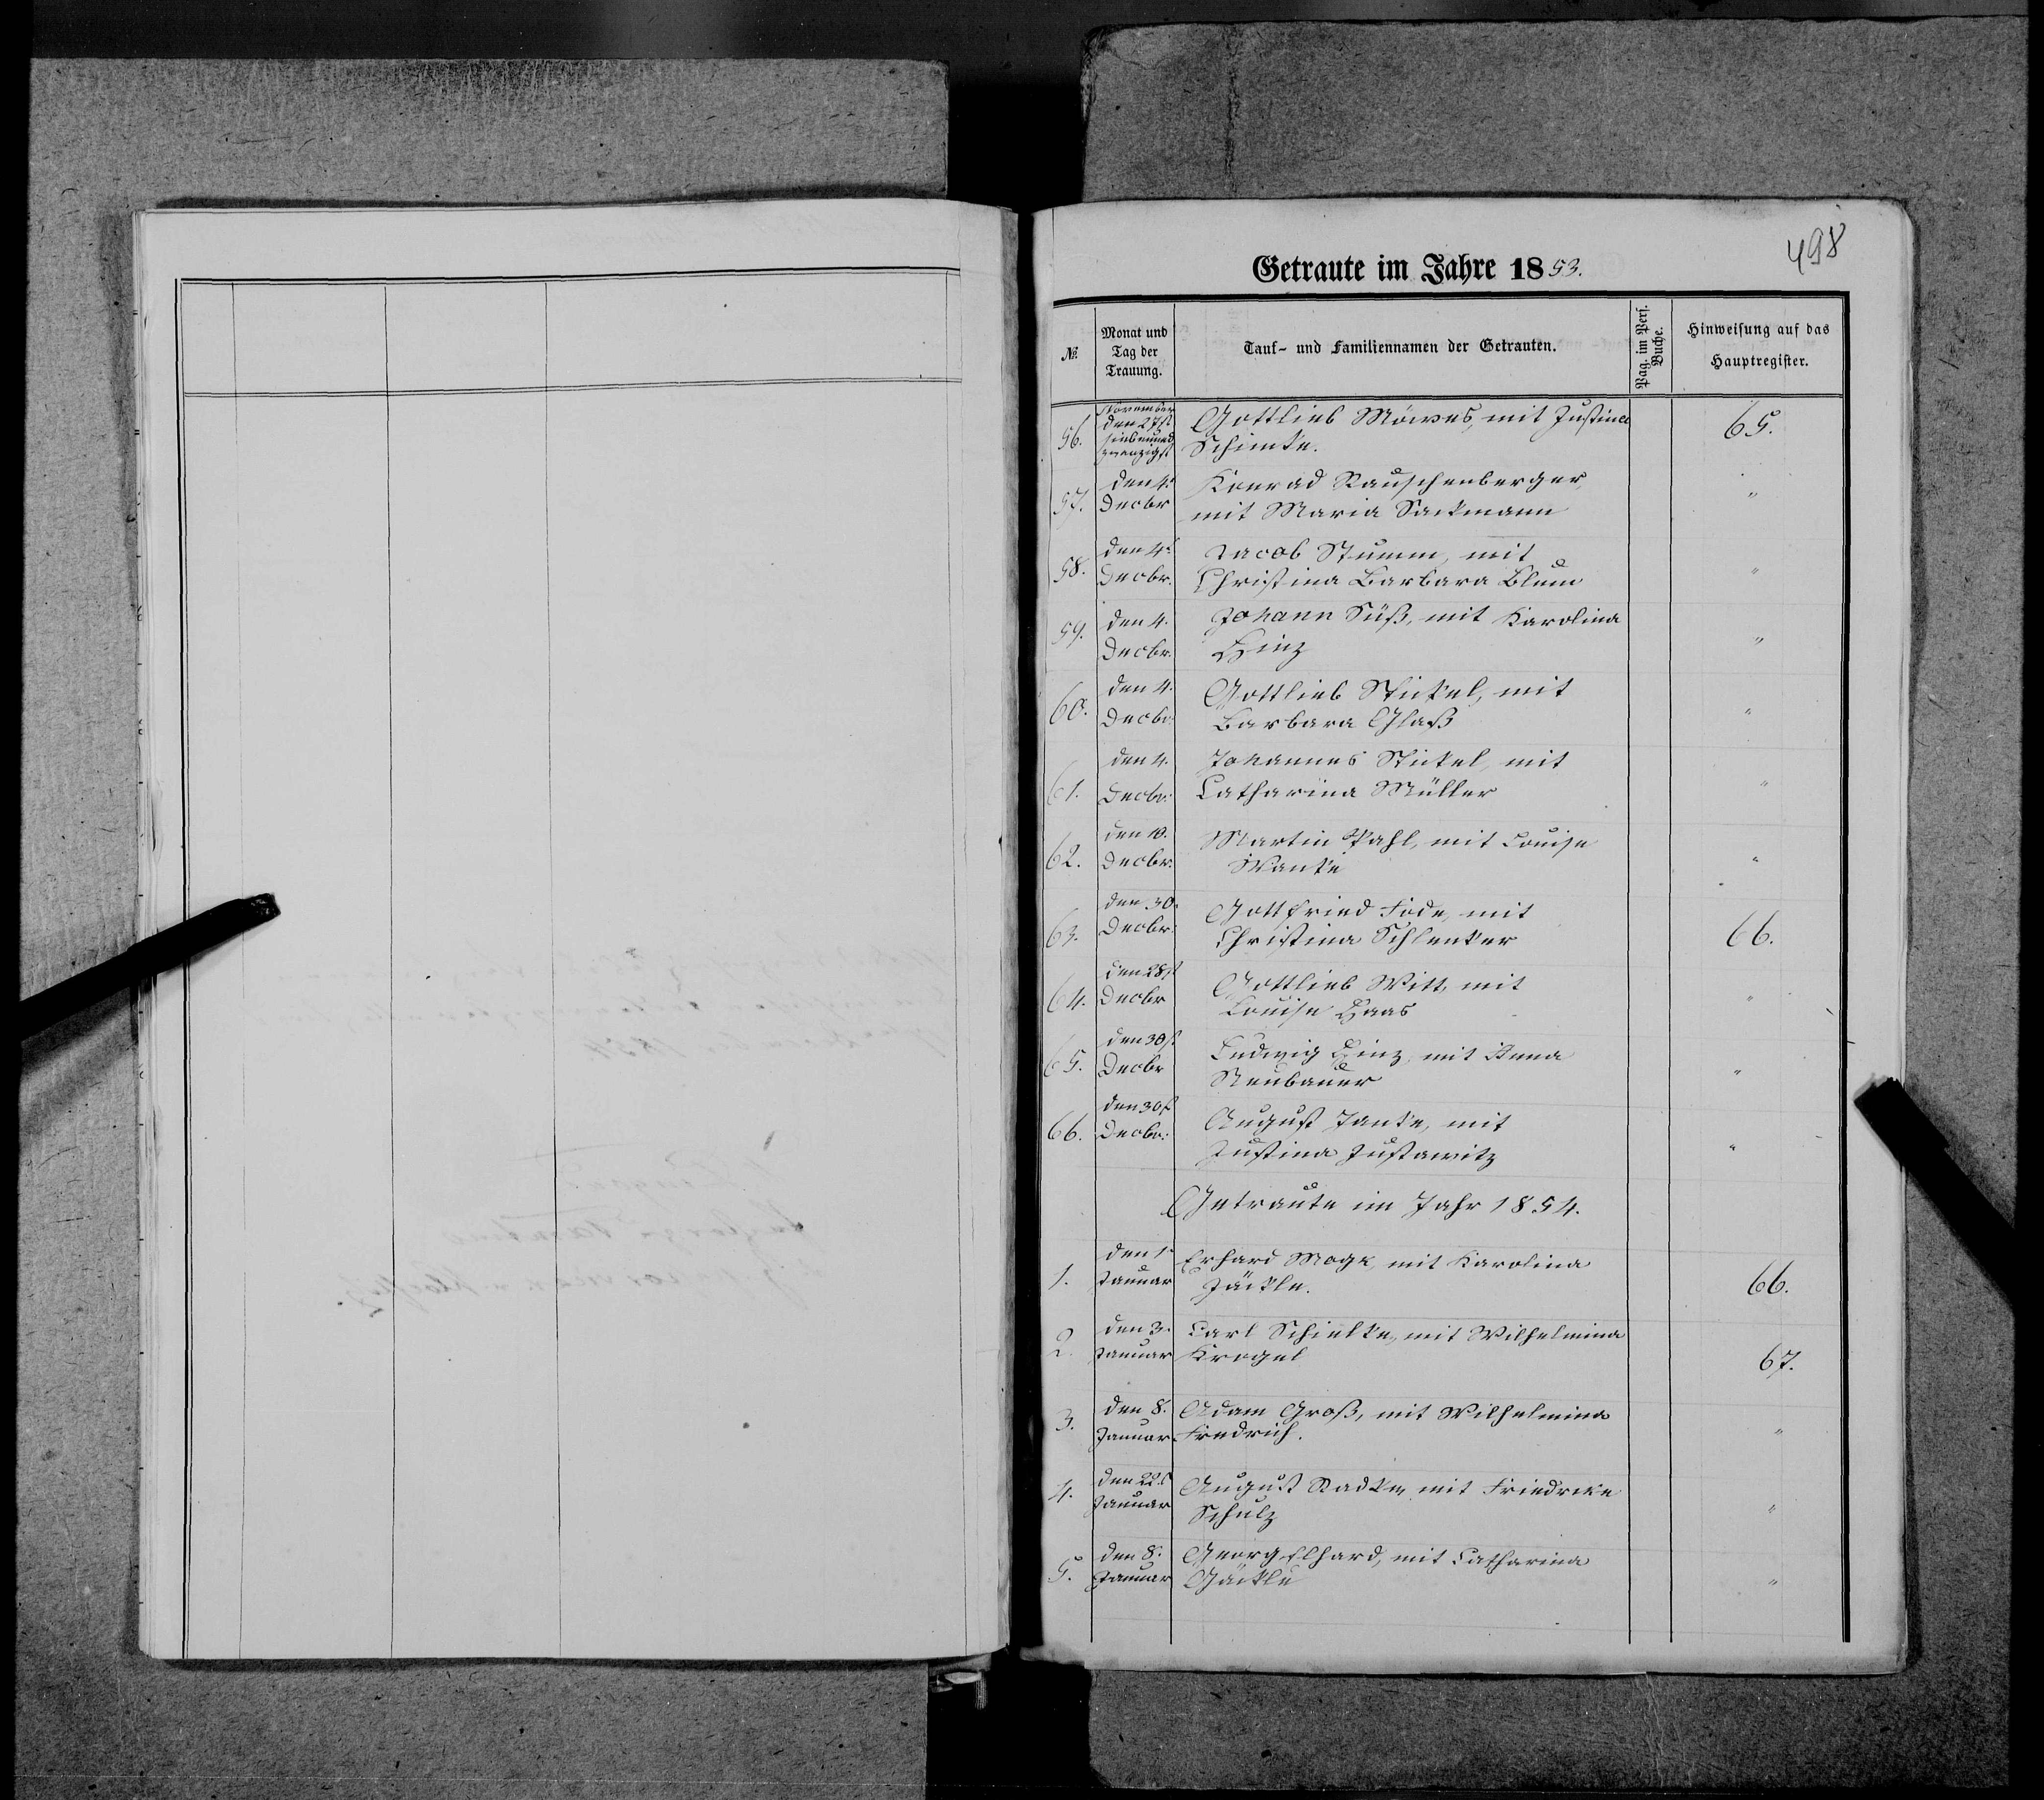 498
Getraute im Jahre 1853.
№ Monat und Tag der Trauung. Tauf- und Familiennamen der Getrauten. Pag. im Pers. Buche. Hinweisung auf das Hauptregister.
56. November den 27st siebenund zwanzigst Gottlieb Möwes, mit Justina 65.
Schimke.
57. den 4. Decbr Konrad Rauschenberger, "
mit Maria Sackmann
58. den 4t Decbr. Jacob Stumm, mit "
Christina Barbara Blum
59. den 4. Decbr. Johann Süß, mit Karolina "
Hinz
60. den 4. Decbr Gottlieb Stickel, mit "
Barbara Glaß
61. den 4. Decbr: Johannes Stickel, mit "
Catharina Müller
62. den 10. Decbr: Martin Pahl, mit Louise "
Wanke
63. den 30. Decbr: Gottfried Fode, mit 66.
Christina Schlenker
64. den 28st Decbr Gottlieb Witt, mit "
Louise Haas
65. den 30st Decbr Ludwig Hinz, mit Anna "
Neubauer
66. den 30st Decbr: August Janke, mit "
Justina Justawitz
Getraute im Jahr 1854.
1. den 1. Januar Erhard Mogk, mit Karolina 66.
Jäckle.
2. den 3. Januar Carl Schielke, mit Wilhelmina 67.
Krogel
3. den 8. Januar Adam Groß, mit Wilhelmina "
Friedrich.
4. den 22t Januar August Radke, mit Friedrike "
Schulz
5. den 8. Januar Georg Elhard, mit Catharina "
Gäckle